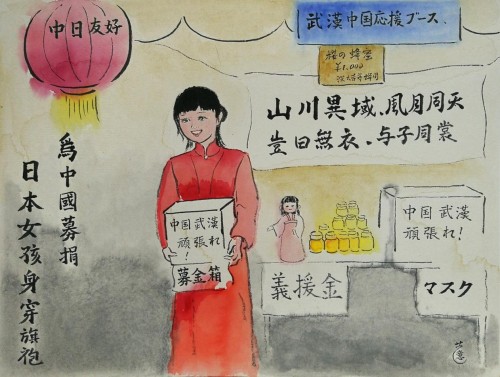 中日友好
武漢中国応援ブース、
桜の蜂蜜
¥1,000
山川異域、風月同天
豈曰無衣、与子同裳
為中國募捐
日本女孩身穿旗袍
中国武漢
頑張れ
!
募金箱
中国武漢
頑張れ!
義援金
マスク